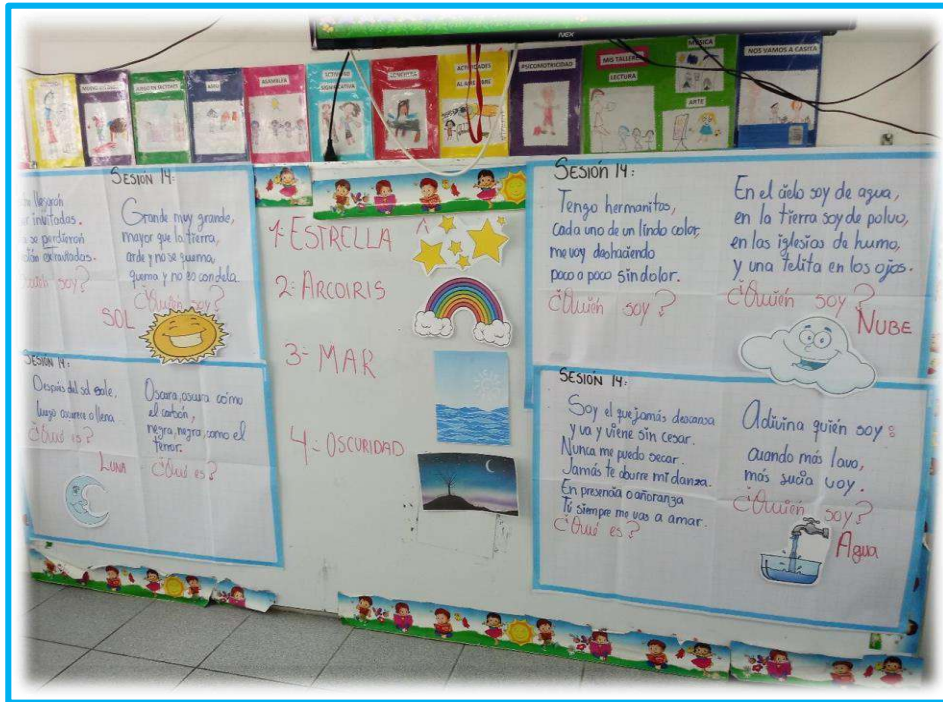 NEX
ASAMBLEA
ACTIVIDAD
SIGNIFICATIVA
LONCHERA
ACTIVIDADES
AL AIRE LIBRE
PSICOMOTRICIDAD
MIS TALLERES
LECTURA
MÚSICA
ARTE
NOS VAMOS A CASITA
SESIÓN 14:
llegaron
invitadas.
se perdieron
extraviadas.
soy?
Grande muy grande,
mayor que la tierra,
arde y no se quema,
quema y no es candela.
¿Quién soy?
SOL
SESIÓN 14:
Después del sol sale,
luego oscurece o llena
¿Qué es?
LUNA
Oscura, oscura como
el carbón,
negra, negra, como el
temor.
¿Qué es?
1- ESTRELLA
2- ARCOIRIS
3- MAR
4- OSCURIDAD
SESIÓN 14:
Tengo hermanitos,
cada uno de un lindo color,
me voy deshaciendo
poco a poco sin dolor.
¿Quién soy?
En el cielo soy de agua,
en la tierra soy de polvo,
en las iglesias de humo,
y una telita en los ojos.
¿Quién soy?
NUBE
SESIÓN 14:
Soy el que jamás descansa
y va y viene sin cesar.
Nunca me puedo secar.
Jamás te aburre mi danza.
En presencia o añoranza
Tú siempre me vas a amar.
¿Qué es?
Adivina quién soy:
cuando más lavo,
más sucia voy.
¿Quién soy?
Agua